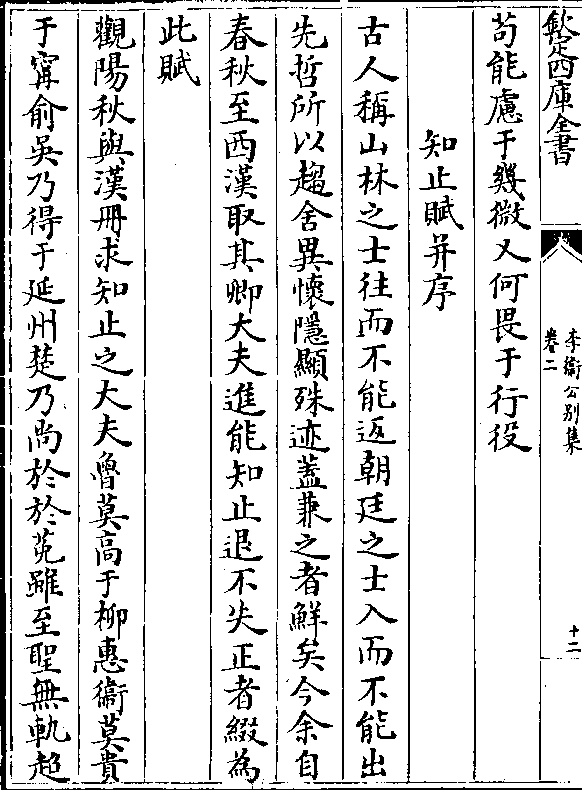 欽定四庫全書
李衞公別集
卷二
十二
苟能慮于幾微又何畏于行役
知止賦并序
古人稱山林之士往而不能返朝廷之士入而不能出
先哲所以趨舍異懷隱顯殊迹蓋兼之者鮮矣今余自
春秋至西漢取其卿大夫進能知止退不失正者綴為
此賦
觀陽秋與漢冊求知止之大夫魯莫高于柳惠衞莫貴
于甯俞吳乃得于延州楚乃尚於於菟雖至聖無軌超